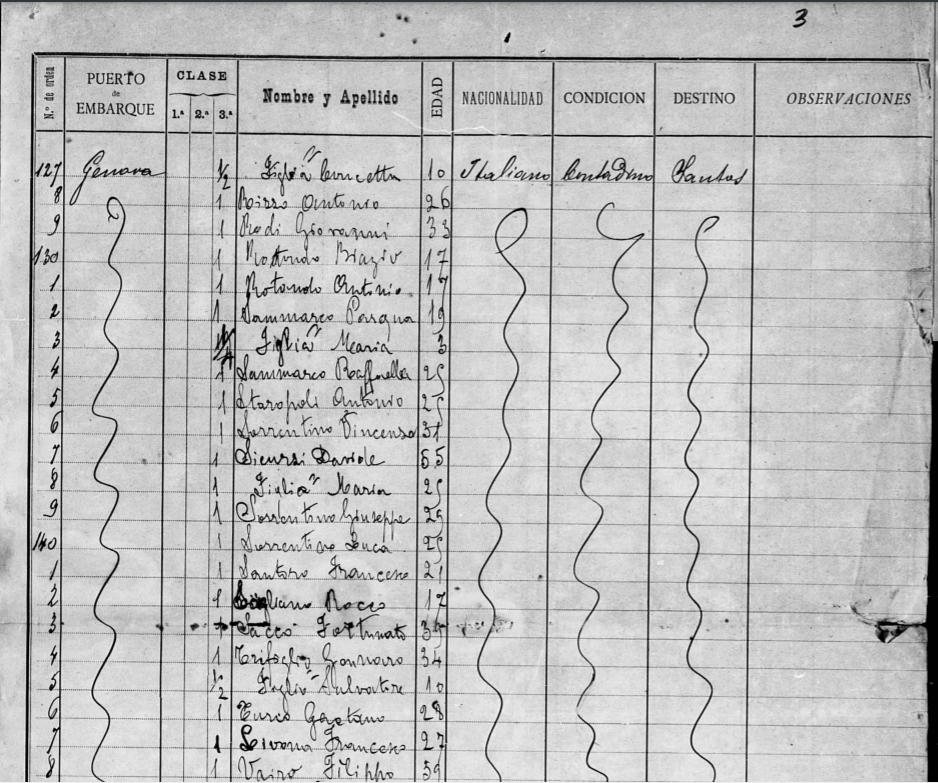 3
N.º de orden PUERTO de EMBARQUE CLASE 1.ª 2.ª 3.ª Nombre y Apellido EDAD NACIONALIDAD CONDICION DESTINO OBSERVACIONES
127 Genova 1/2 Figlia Concetta 10 Italiano Contadino Santos
8 1 Rizzo Antonio 26
9 1 Rodi Giovanni 33
130 1 Rotondo Biazio 17
1 1 Rotondo Antonio 17
2 1 Sammarco Pasqua 19
3 Figlia Maria 3
4 1 Sammarco Raffaella 25
5 1 Staropoli Antonio 25
6 1 Sorrentino Vincenzo 31
7 1 Sicurzi Davide 55
8 1 Figlia Maria 25
9 1 Sorrentino Giuseppe 25
140 1 Sorrentino Luca 25
1 1 Santoro Francesco 21
2 1 Rocco 17
3 Sacco Fortunato
4 1 Trifoglio Gennaro 34
5 1/2 Figlio Salvatore 10
6 1 Turco Gaetano 28
7 1 Francesco 27
8 1 Vairo Filippo 59